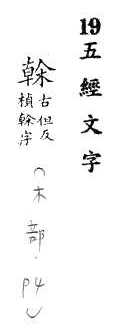 19五經文字
榦
古但反
楨榦字
(木部.P4)